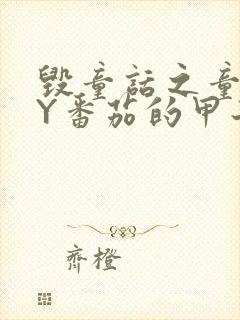 毁童话之童
Y番茄的甲
齐橙